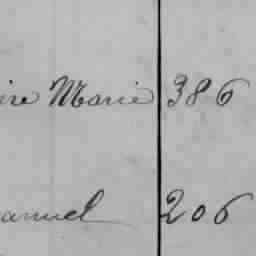 ire Marie 386
anuel 206